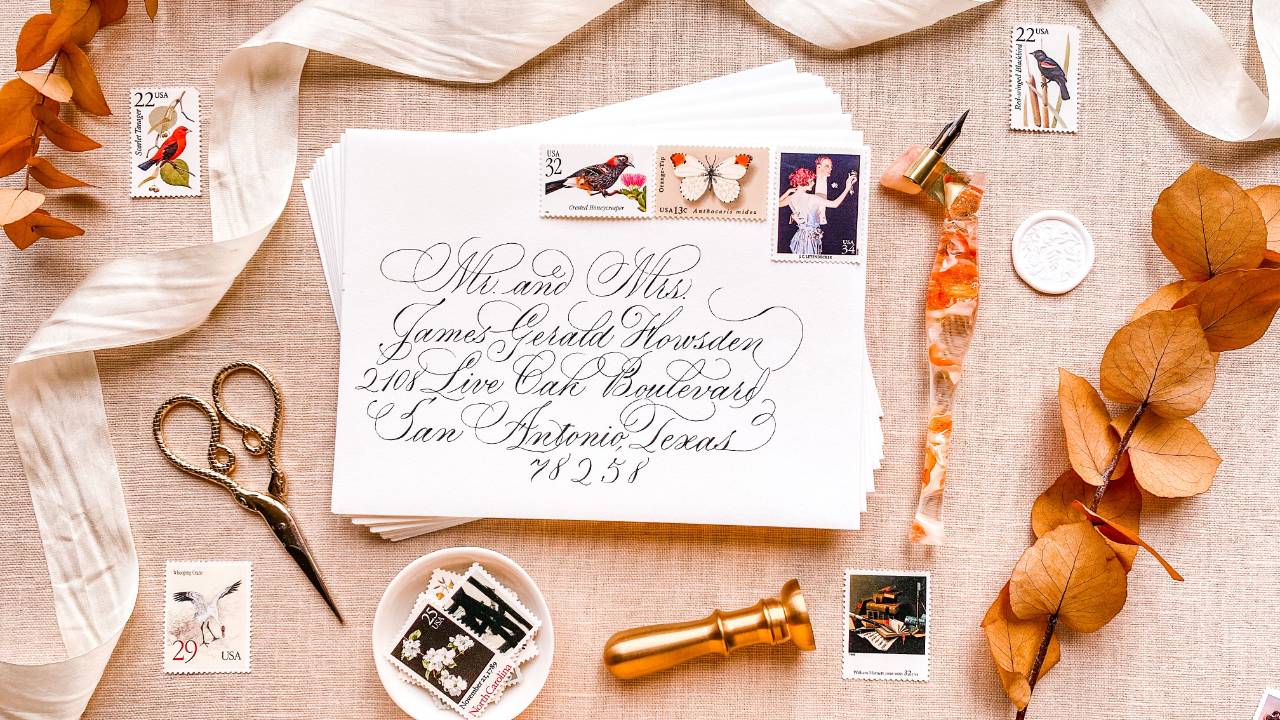 22 USA
Scarlet Tanager
22 USA
Red-winged Blackbird
USA
32
Crested Honeycreeper
Orange-Tip
USA 13c Anthocaris midea
USA
34
J.C. LEYENDECKER
Mr. and Mrs.
James Gerald Howsden
2108 Live Oak Boulevard
San Antonio, Texas
78258
Whooping Crane
29 USA
25
November 21, 1789
North Carolina
William M. Harnett
32 USA